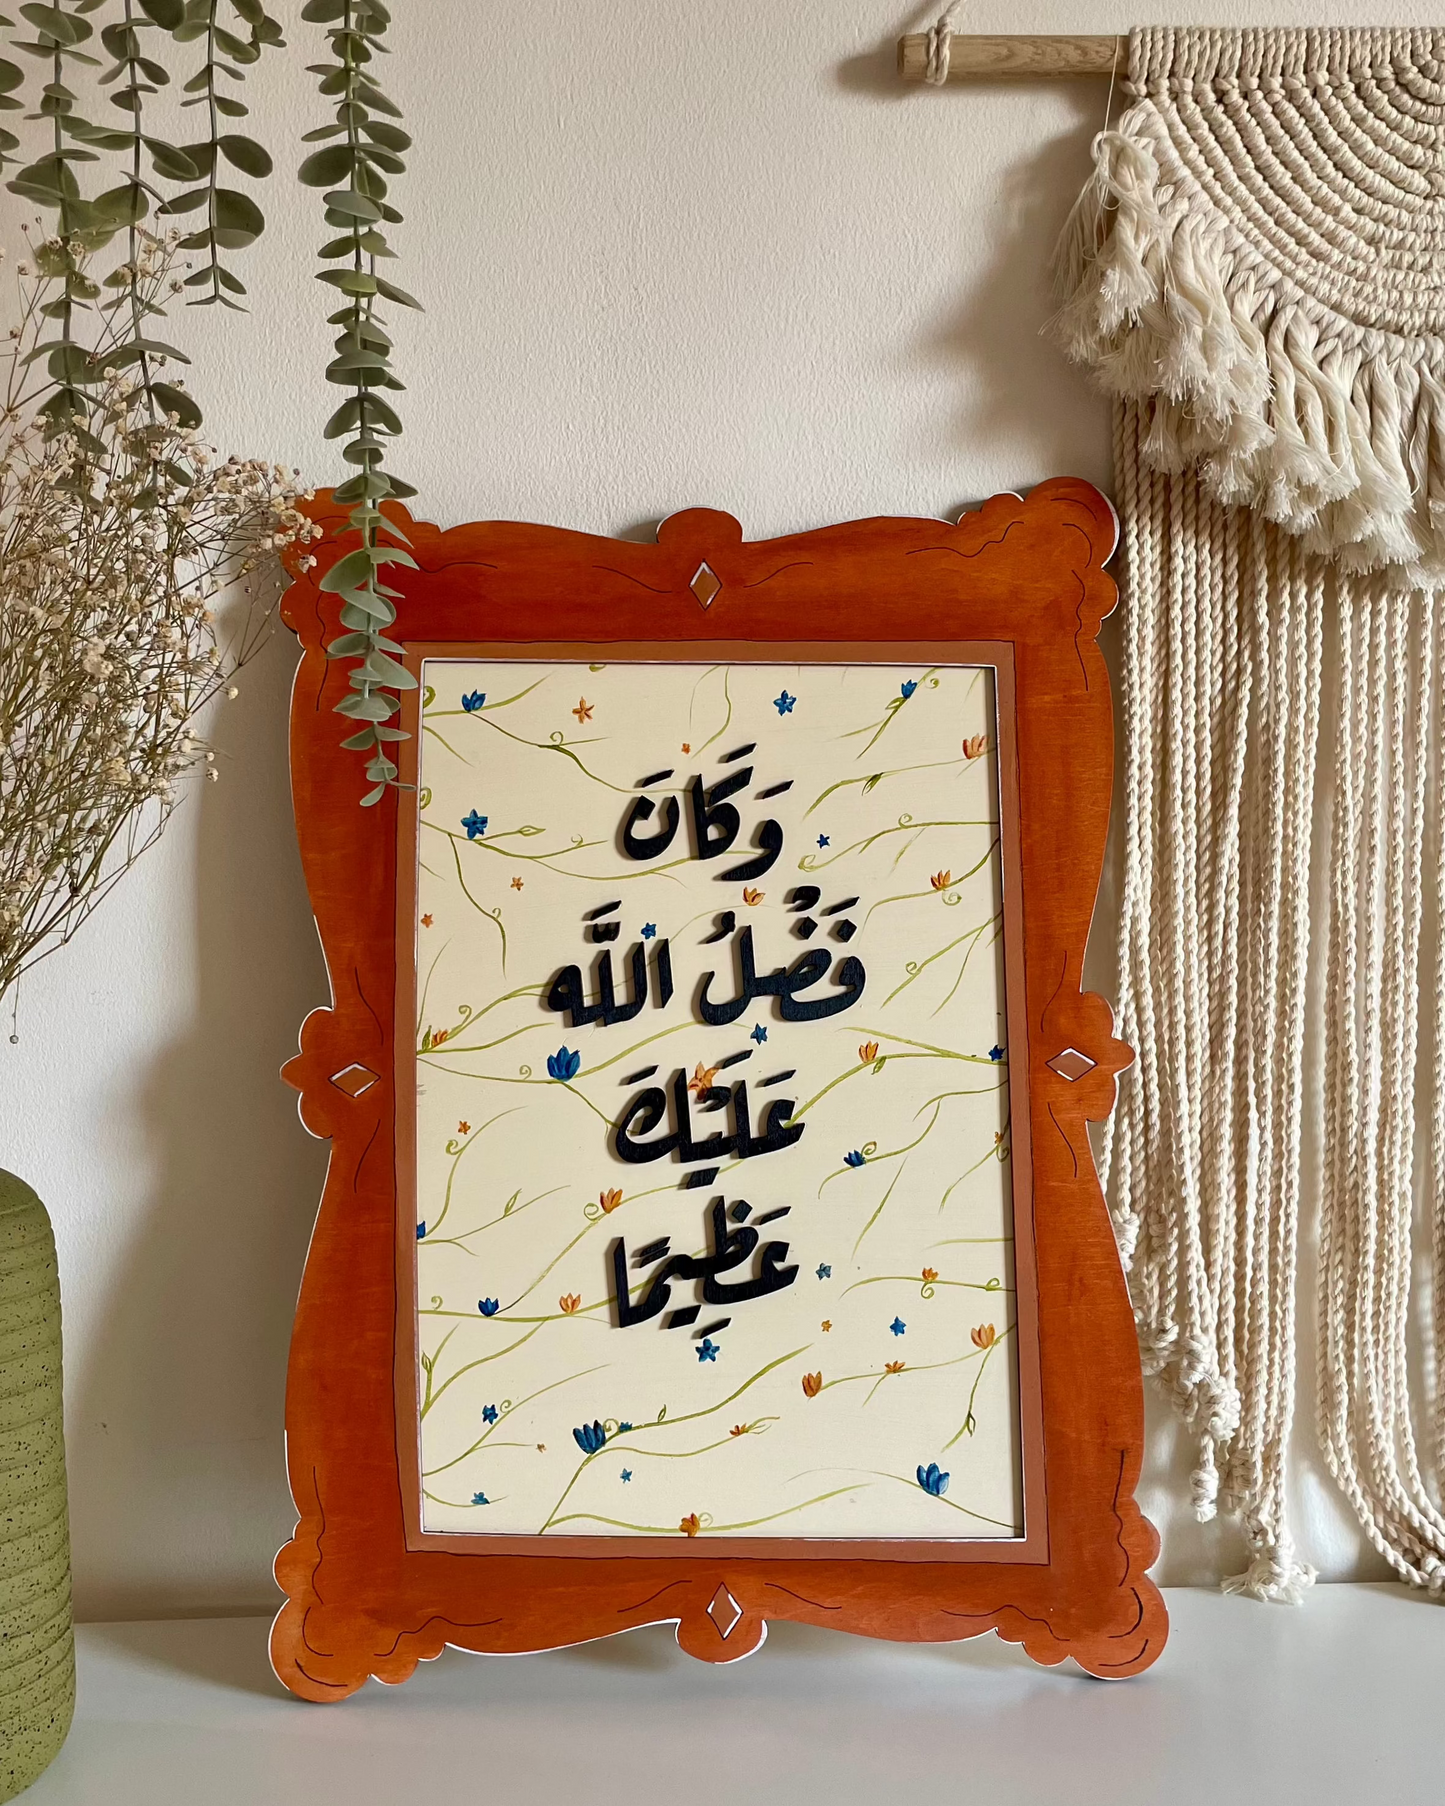 وَكَانَ
فَضْلُ اللَّه
عَلَيْكَ
عَظِيمًا